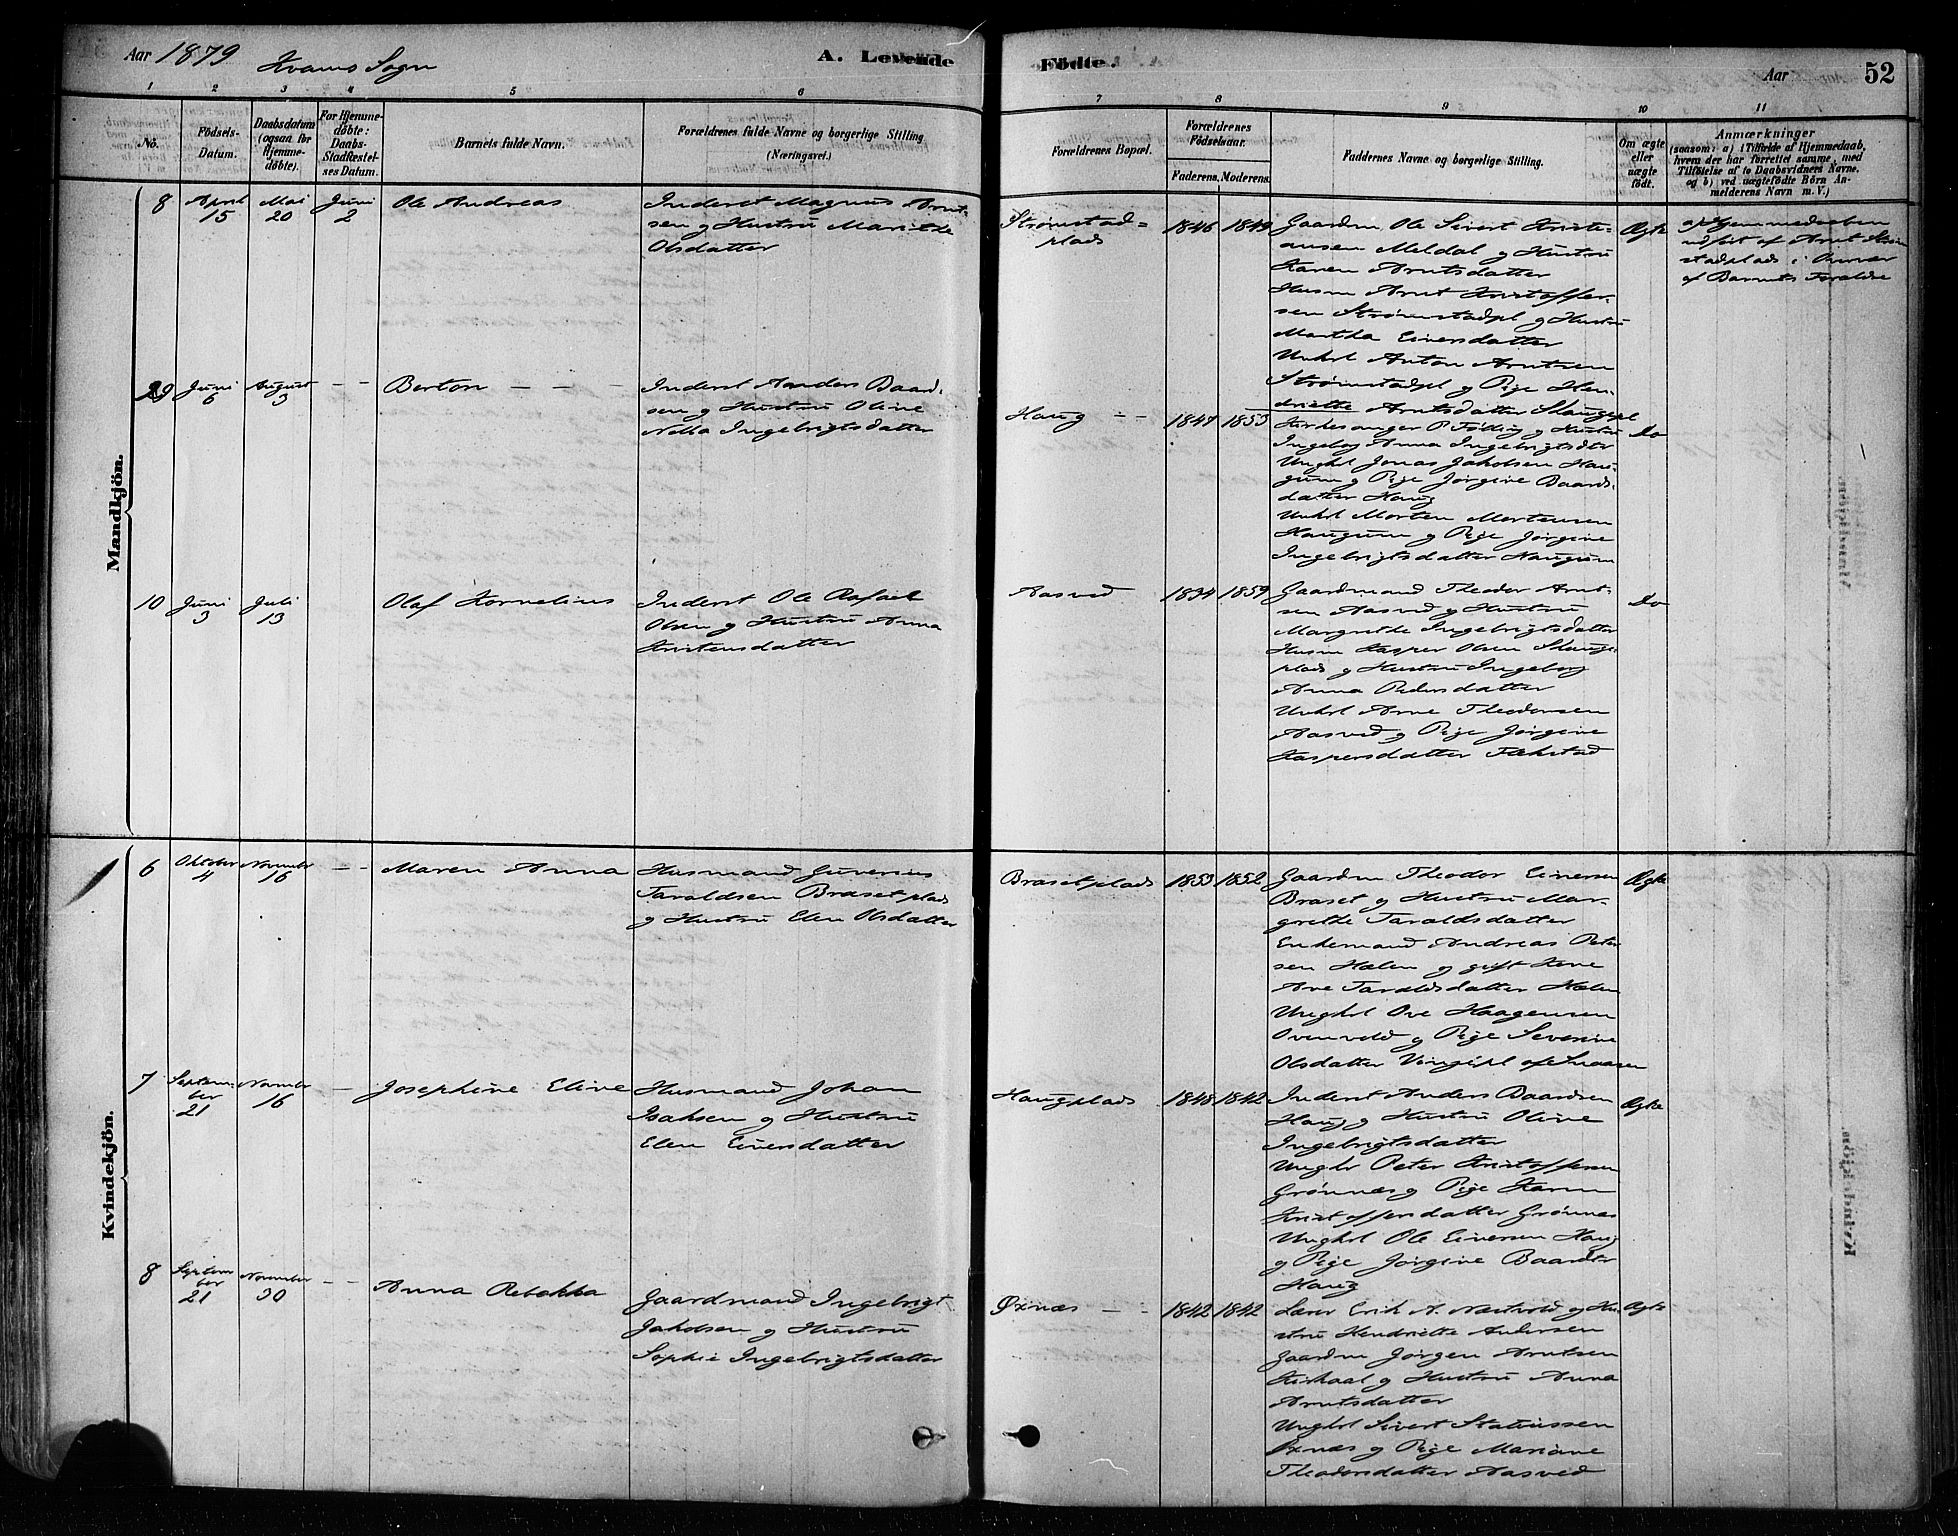 Aar 1879 Kvams Sogn
A. Levende
Fødte.
Aar
52
1 2 3 4 5 6
7 8 9 10 11
No.
Fødsels-Datum.
Daabsdatum (ogsaa for Hjemmedøbte).
For Hjemmedøbte: Daabs-Stadfæstelses Datum.
Barnets fulde Navn.
Forældrenes fulde Navne og borgerlige Stilling. (Næringsvei.)
Forældrenes Bopæl.
Forældrenes Fødselsaar.
Faderens. Moderens.
Faddernes Navne og borgerlige Stilling.
Om ægte eller uægte født.
Anmærkninger
(saasom: a) i Tilfælde af Hjemmedaab,
hvem der har forrettet samme, med
Tilføielse af to Daabsvidners Navne.
og b) ved uægtefødte Børn An-
melderens Navn m. V.)
Mandkjön.
8 April 15 Mai 20 Juni 2 Ole Andreas
Inderst Magnus Arnt-
sen og Hustru Marithe
Olsdatter
Strømstad=
plads
1846 1849
Gaardm Ole Sivert Kristi-
ansen Meldal og Hustru
Karen Arntsdatter
Husm Arnt Kristoffer-
sen Strømstadpl og Hustru
Martha Eliversdatter
Unkrl Anton Arntsen
Strømstadpl og Pige Hen-
driette Arntsdatter
Ægte
a) Hjemmedaaben
udført af Arnt Strøm
stadplads i Overvær
af Barnets Forældre
9 Juni 6 August 3 - - Berton - - -
Inderst Anders Baard-
sen og Hustru Oline
Ingebrigtsdatter
Haug - -
1847 1853
Kirkesanger P Følling og Hustru
Ingebog Anna Ingebrigtsdtr
Ungkl Jonas Jakobsen Hau-
gum og Pige Jørgine Baards-
datter Haug
Unkrl Morten Mortensen
Haugum og Pige Jørgine
Ingebrigtsdatter Haugum
Do
10 Juni 3 Juli 13 Olaf Kornelius
Inderst Ole Rafael
Olsen og Hustru Anna
Kristensdatter
Aasved
1834 1859
Gaardmand Theodor Arnt-
sen Aasved og Hustru
Margrethe Ingebrigtsdatter
Husm Kasper Olsen
plads og Hustru Ingeborg
Anna Pedersdatter
Unkrl Arne Theodorsen
Aasved og Pige Jørgine
Kaspersdatter
Do
Kvindekjön.
6 Oktober 4 November 16 - - Maren Anna
Husmand
Taraldsen Brasetplads
og Hustru Elen Olsdatter
Brasetplads
1853 1852
Gaardm Theodor Einersen
Braset og Hustru Mar-
grethe Taraldsdatter
Enkemand Andreas Peter
sen Hælen og gift Kone
Taraldsdatter Hælen
Ungkrl Ove Haagensen
og Pige Severine
Olsdatter
Ægte
7 Septem-ber 21 November 16 - Josephine Eline
Husmand Johan
Isaksen og Hustru
Elen Einersdatter
Haugplads
1848 1842
Inderst Anders Baardsen
Haug og Hustru Oline
Ingebrigtsdatter
Ungkr Peter Kristoffersen
Grønnæs og Pige Karen
Kristoffersdatter Grønnæs
Ungkrl Ole Einersen Haug
og Pige Jørgine Baardsdtr
Haug
Ægte
8 Septem-ber 21 November 30 - - Anna Rebekka
Gaardmand Ingebrigt
Jakobsen og Hustru
Sophie Ingebrigtsdatter
Øxnæs - -
1842 1842
Lærer Erik A. Næstvold og Hu-
stru Hendriette Andersen
Gaardm Jørgen Arntsen
og Hustru Anna
Arntsdatter
Ungkrl Sivert
Øxnæs og Pige Mariane
Theodorsdatter Aasved
Ægte